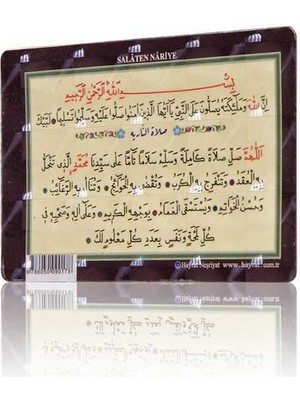 SALÂTEN NÂRİYE
بِسْمِ اللّٰهِ الرَّحْمٰنِ الرَّحِيمِ
اِنَّ اللّٰهَ وَمَلٰٓئِكَتَهُ يُصَلُّونَ عَلَى النَّبِيِّ يَٓا اَيُّهَا الَّذِينَ اٰمَنُوا صَلُّوا عَلَيْهِ وَسَلِّمُوا تَسْلِيمًا ۞ لَبَّيْكَ
صَلَاةُ النَّارِيَةِ
اَللّٰهُمَّ صَلِّ صَلَاةً كَامِلَةً وَسَلِّمْ سَلَامًا تَٓامًّا عَلٰى سَيِّدِنَا مُحَمَّدٍ الَّذِي تَنْحَلُّ
بِهِ الْعُقَدُ ۞ وَتَنْفَرِجُ بِهِ الْكُرَبُ ۞ وَتُقْضٰى بِهِ الْحَوَٓائِجُ ۞ وَتُنَالُ بِهِ الرَّغَٓائِبُ ۞
وَحُسْنُ الْخَوَاتِمِ ۞ وَيُسْتَسْقَى الْغَمَامُ ۞ بِوَجْهِهِ الْكَرِيمِ ۞ وَعَلٰٓى اٰلِهِ وَصَحْبِهِ فِي
كُلِّ لَمْحَةٍ وَنَفَسٍ بِعَدَدِ كُلِّ مَعْلُومٍ لَكَ ۞
Hayrat Neşriyat www.hayrat.com.tr